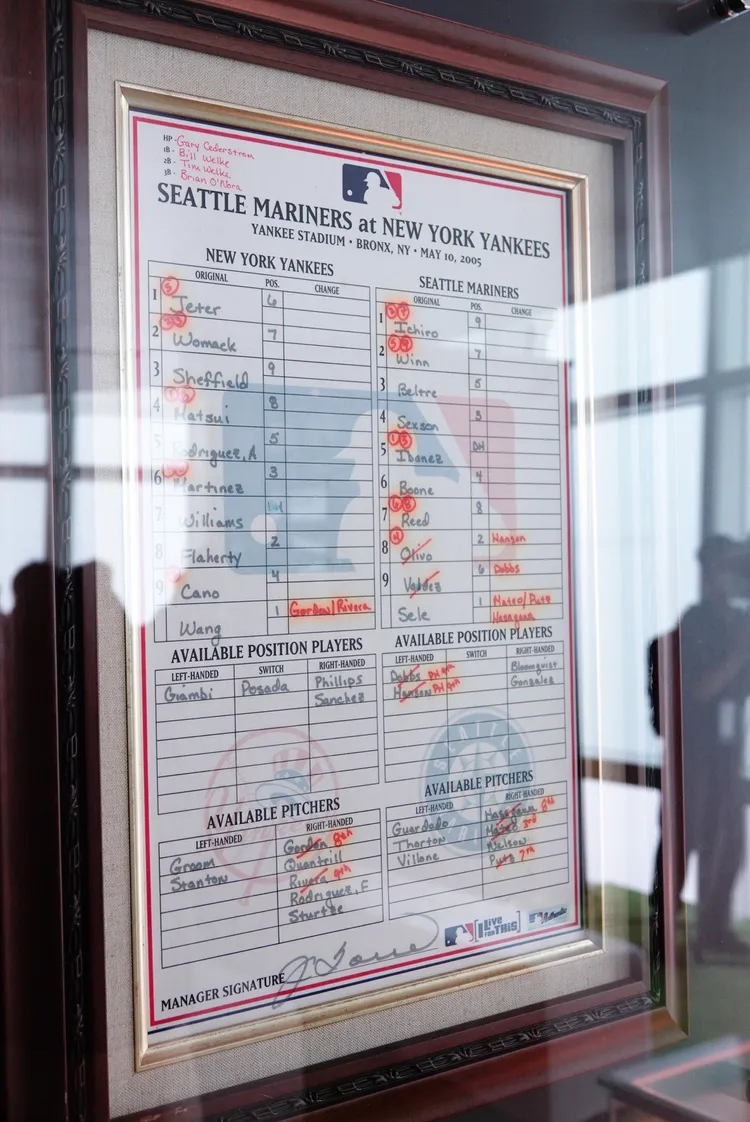 HP - Gary Cederstrom
1B - Bill Welke
2B - Tim Welke
3B - Brian O'Nora
SEATTLE MARINERS at NEW YORK YANKEES
YANKEE STADIUM • BRONX, NY • MAY 10, 2005
NEW YORK YANKEES
ORIGINAL POS. CHANGE
1 Jeter 6
2 Womack 7
3 Sheffield 9
4 Matsui 8
5 Rodriguez, A 5
6 Martinez 3
7 Williams DH
8 Flaherty 2
9 Cano 4
Wang 1 Gordon/Rivera
SEATTLE MARINERS
ORIGINAL POS. CHANGE
1 Ichiro 9
2 Winn 7
3 Beltre 5
4 Sexson 3
5 Ibanez DH
6 Boone 4
7 Reed 8
8 Olivo 2 Hansen
9 Valdez 6 Dobbs
Sele 1 Mateo/Putz
Hasegawa
AVAILABLE POSITION PLAYERS
LEFT-HANDED SWITCH RIGHT-HANDED
Giambi Posada Phillips
Sanchez
AVAILABLE POSITION PLAYERS
LEFT-HANDED SWITCH RIGHT-HANDED
Dobbs PH 9th Bloomquist
Hansen PH 9th Gonzalez
AVAILABLE PITCHERS
LEFT-HANDED RIGHT-HANDED
Groom Gordon 8th
Stanton Quantrill
Rivera 9th
Rodriguez, F
Sturtze
AVAILABLE PITCHERS
LEFT-HANDED RIGHT-HANDED
Guardado Hasegawa 8th
Thorton Mateo 3rd
Villone Nelson
Putz 7th
MANAGER SIGNATURE J Torre
I Live FOR THIS
Authentic